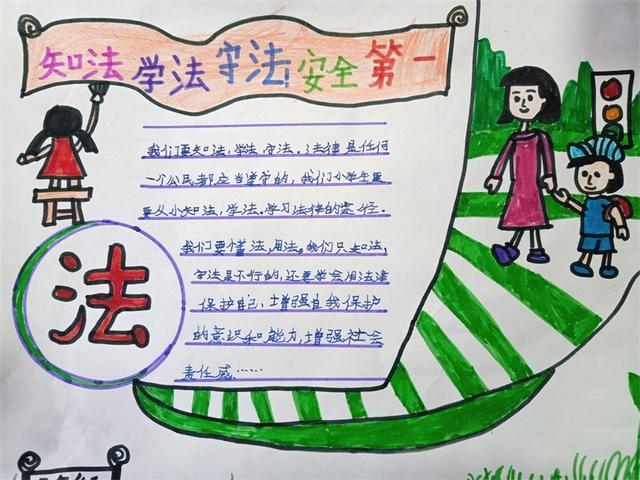 知法 学法 守法 安全 第一
我们要知法,学法,守法。法律是任何
一个公民都应当掌管的,我们小学生更
要从小知法,学法。学习法律的途径.
我们要懂法,用法。我们只知法,
守法是不行的,还要学会用法津
保护自己,增强自我保护
的意识和能力,增强社会
责任感……
法